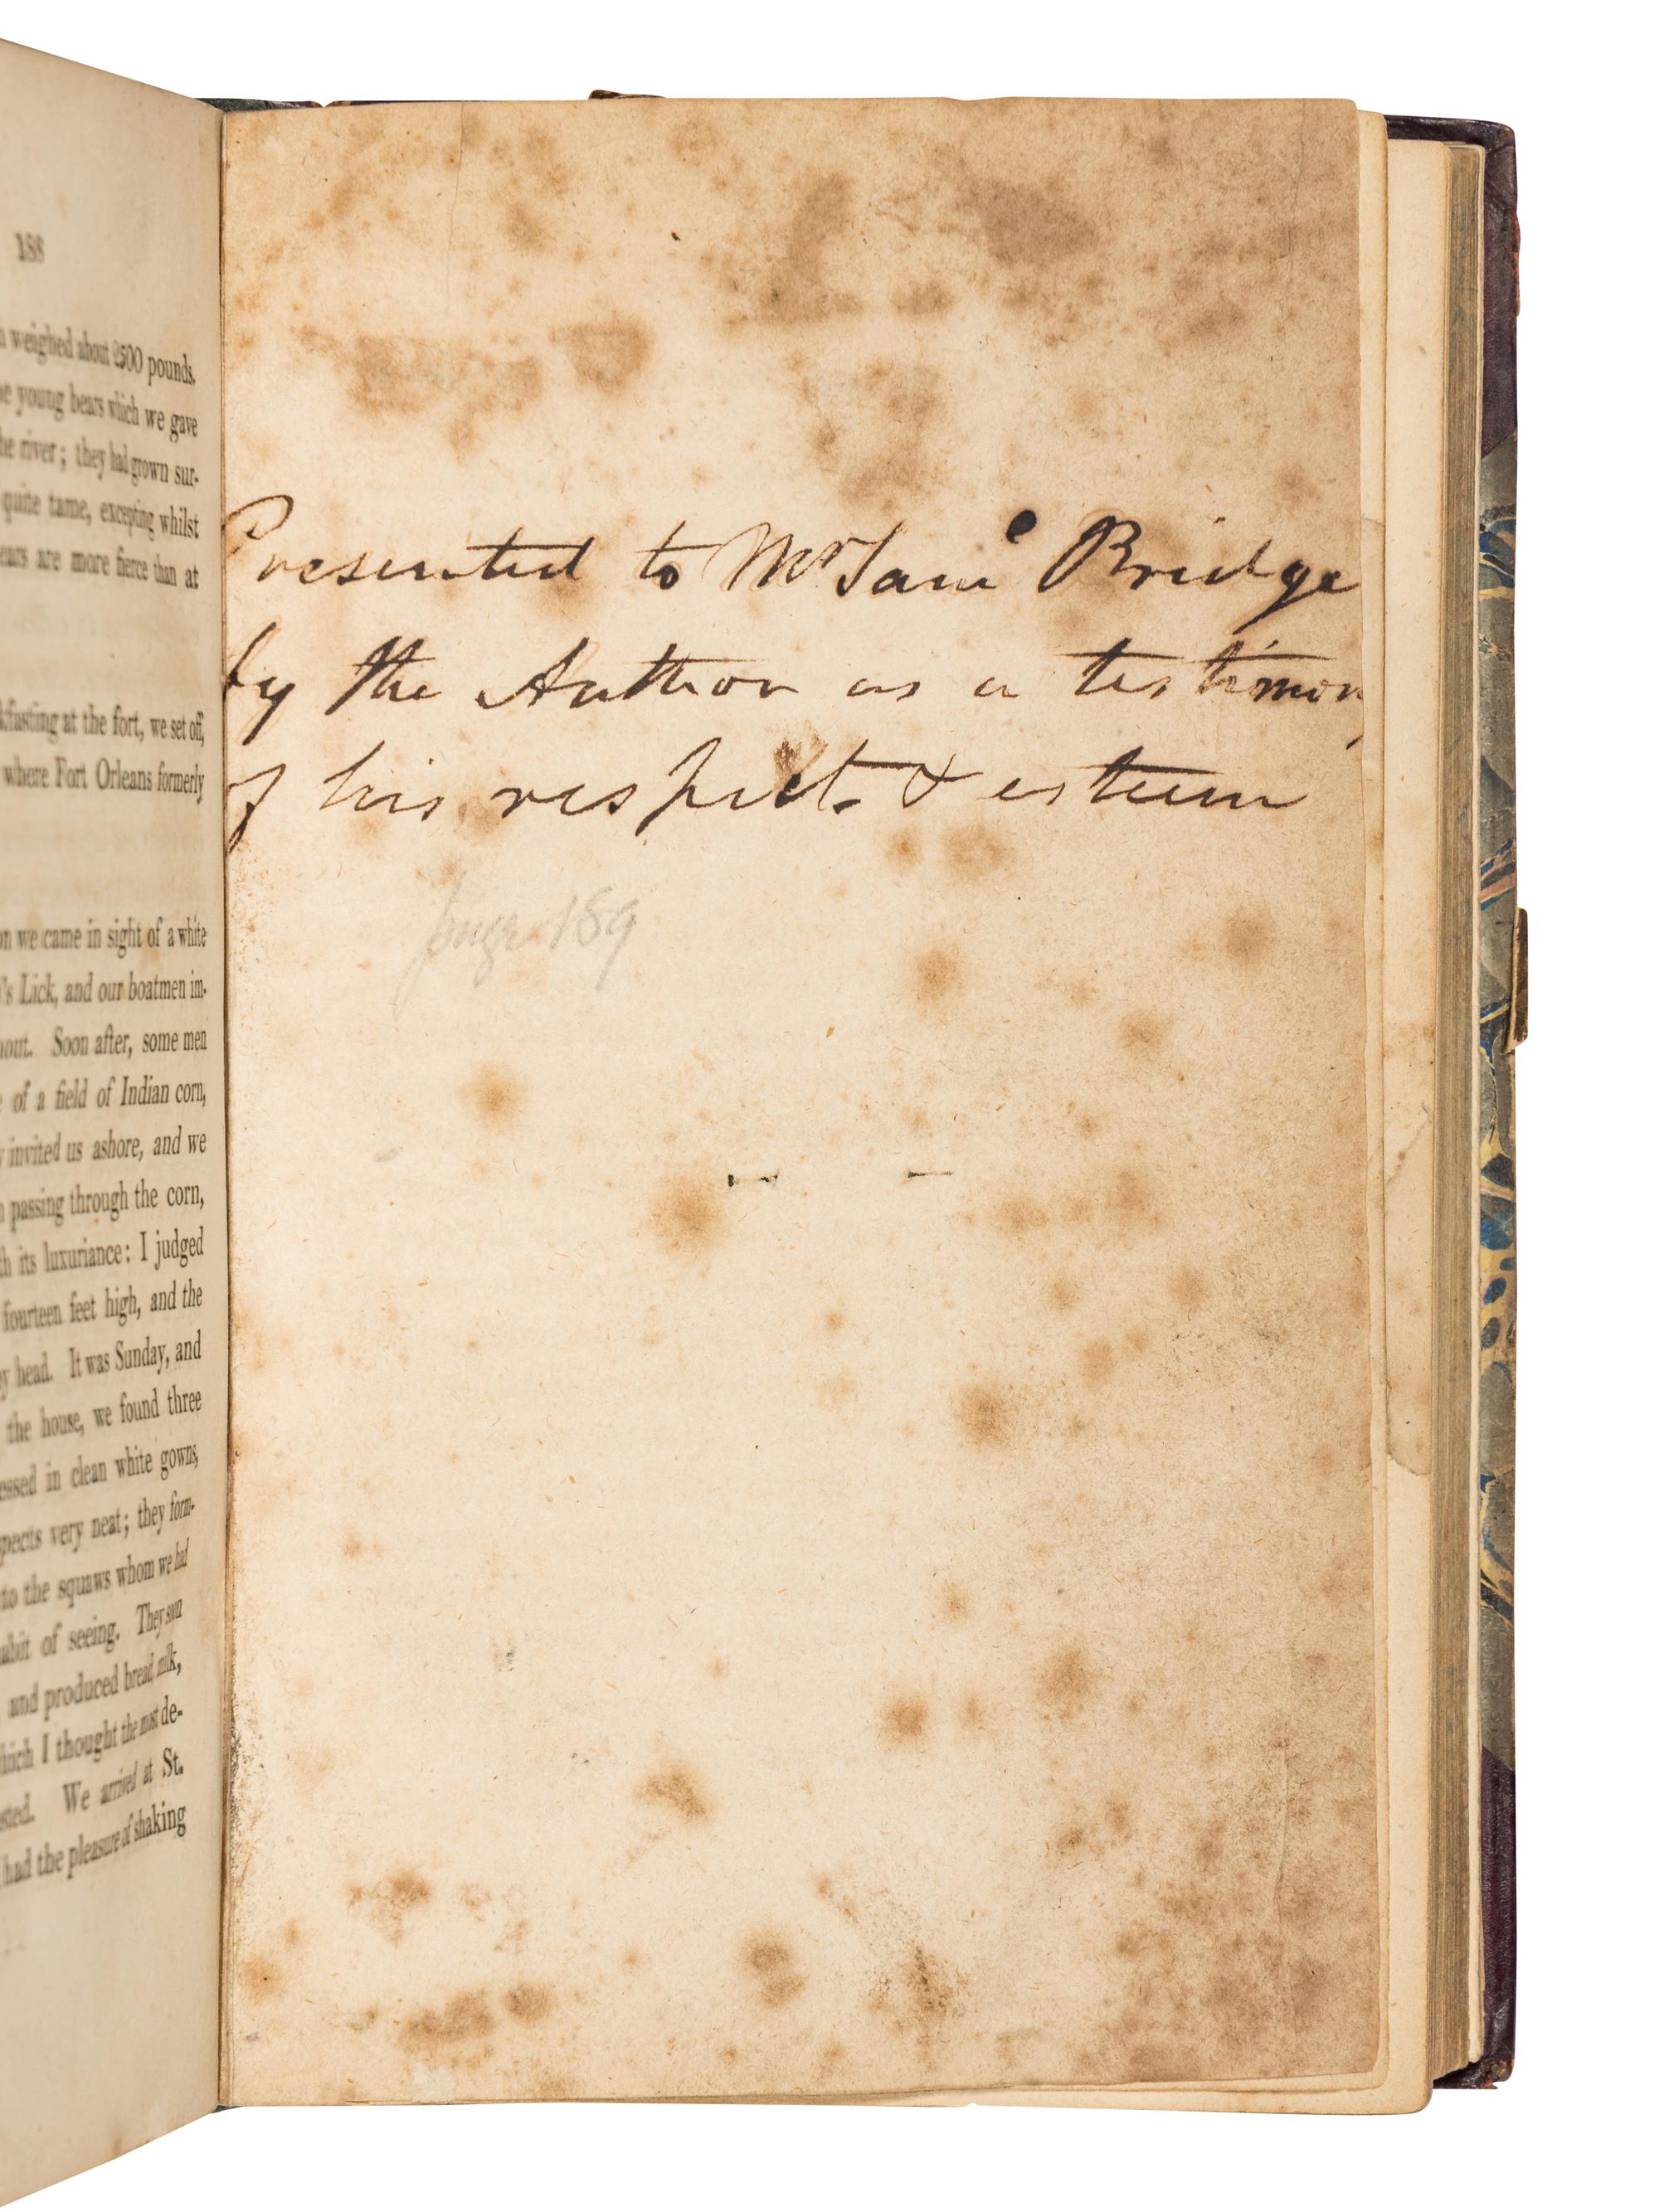 188
weighed about 2500 pounds.
young bears which we gave
he river; they had grown sur-
quite tame, excepting whilst
ears are more fierce than at
kfasting at the fort, we set off,
where Fort Orleans formerly
on we came in sight of a white
's Lick, and our boatmen im-
hout. Soon after, some men
of a field of Indian corn,
invited us ashore, and we
passing through the corn,
th its luxuriance: I judged
fourteen feet high, and the
head. It was Sunday, and
the house, we found three
essed in clean white gowns,
spects very neat; they form-
to the squaws whom we had
habit of seeing. They soon
and produced bread, milk,
which I thought the most de-
sted. We arrived at St.
had the pleasure of shaking
Presented to Mr Saml Bridge
by the Author as a testimony
of his respect & esteem
page 189